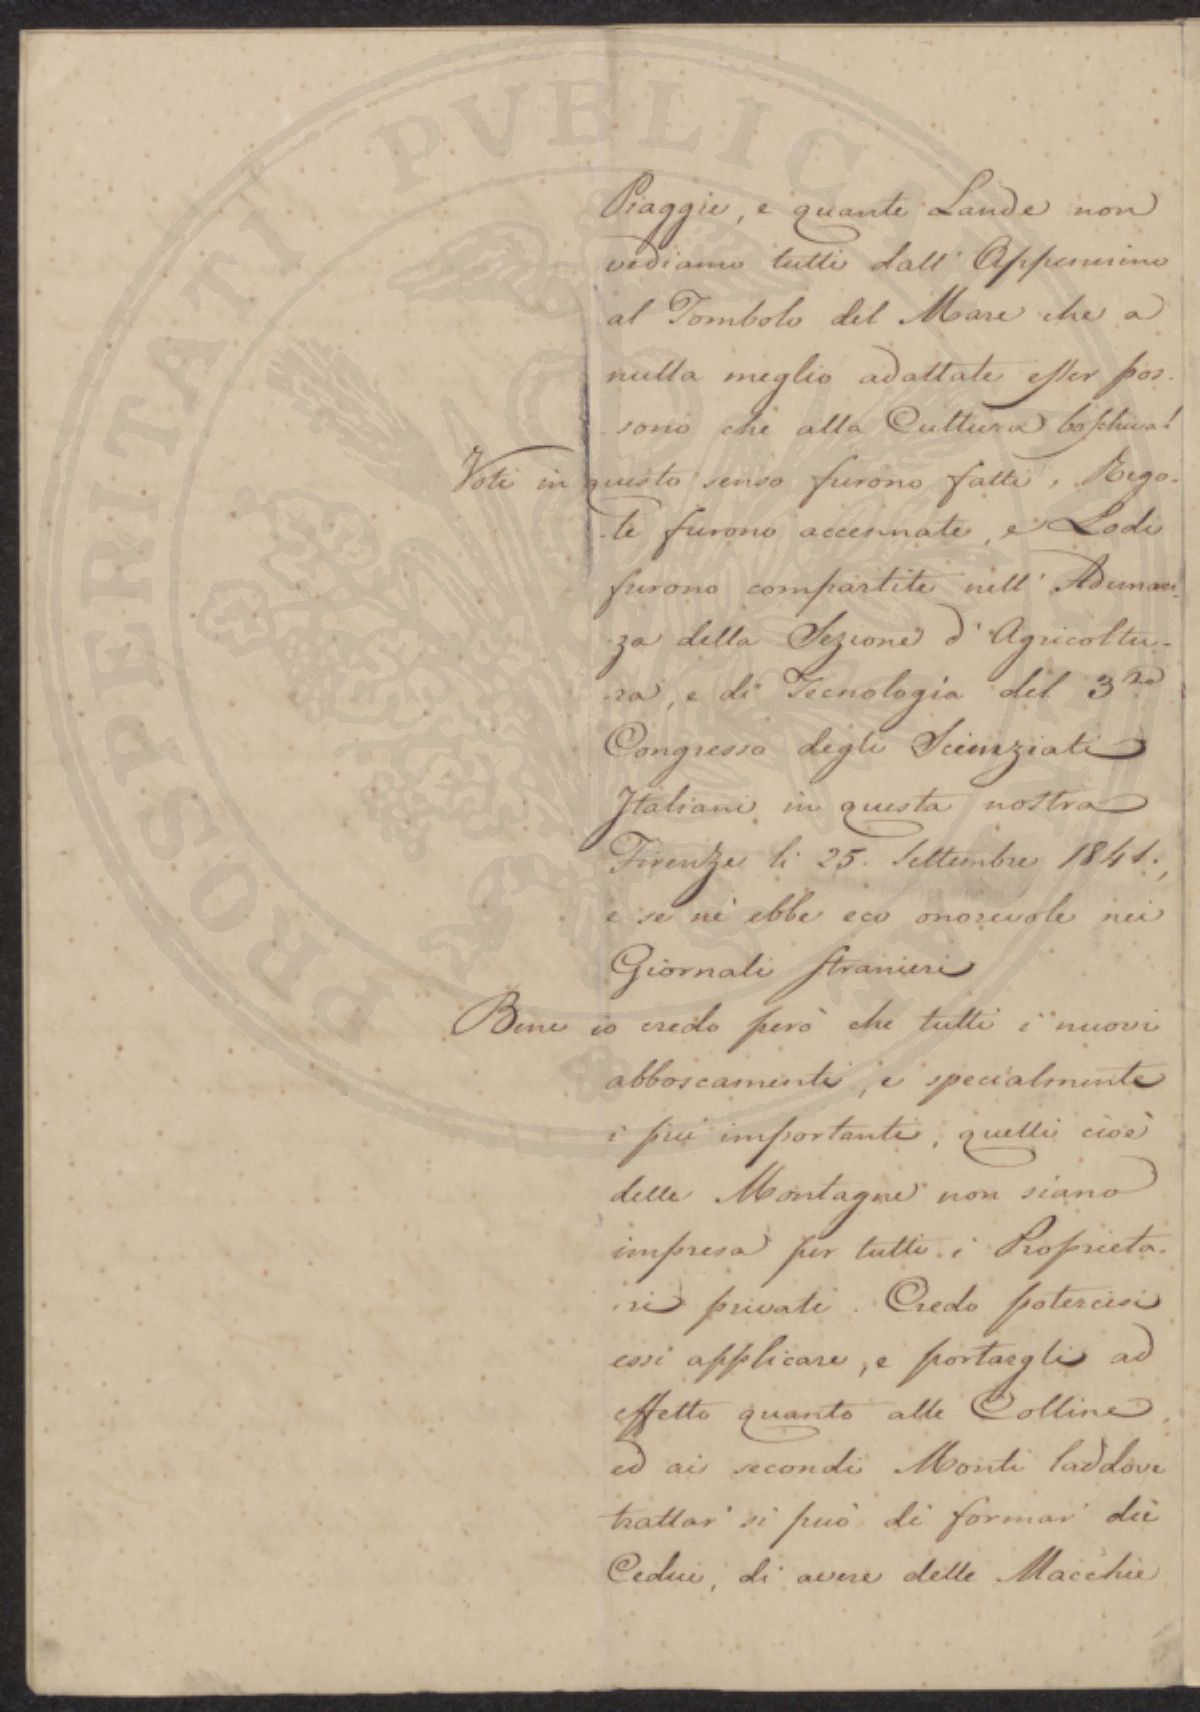 Piaggie, e quante Lande non
vediamo tutti dall' Appennino
al Tombolo del Mare che a
nulla meglio adattate esser pos-
sono che alla Cultura boschiva!
Voti in questo senso furono fatti, Rego-
-le furono accennate, e Lodi
furono compartite nell' Adunan-
-za della Sezione d' Agricoltu-
-ra, e di Tecnologia del 3zo
Congresso degli Scienziati
Italiani in questa nostra
Firenze li 25. Settembre 1841.,
e se nè ebbe eco onorevole nei
Giornali stranieri
Bene io credo però che tutti i nuovi
abboscamenti, e specialmente
i più importanti, quelli cioè
delle Montagne non siano
impresa per tutti i Proprieta-
-ri privati. Credo potercisi
essi applicare, e portargli ad
effetto quanto alle Colline,
ed ai secondi Monti laddove
trattar si può di formar dei
Cedui, di avere delle Macchie
PROSPERITATI PVBLICAE AVGENDAE